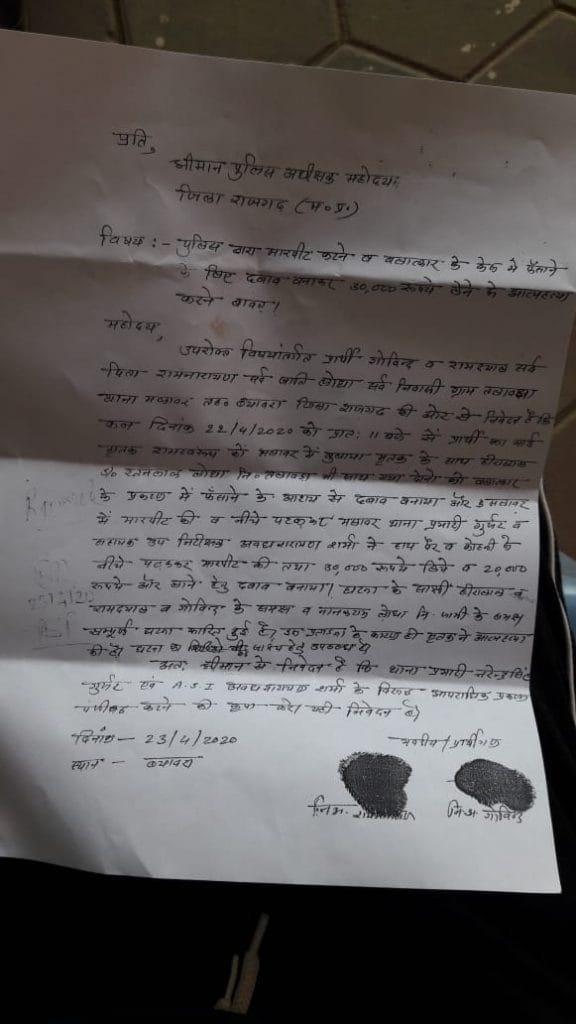 प्रति,
श्रीमान पुलिस अधीक्षक महोदय,
जिला राजगढ (म॰ प्र॰)
विषय :- पुलिस द्वारा मारपीट करने व बलात्कार के केस मे फँसाने
के लिए दबाव बनाकर 30,000 रूपये लेने के आत्महत्या
करने बाबत।
महोदय,
उपरोक्त विषयांतर्गत प्रार्थी गोविन्द व रामदयाल सर्व
पिता रामनारायण सर्व जाति लोधा सर्व निवासी ग्राम
थाना मलावर तह॰ ब्यावरा जिला राजगढ की ओर से निवेदन है कि
कल दिनांक 22/4/2020 को प्रात: 11 बजे से प्रार्थी का भाई
मृतक रामस्वरूप को मलावर में बुलाया मृतक के साथ हीरालाल
S/o रतनलाल लोधा नि॰ भी साथ गया दोनो को बलात्कार
के प्रकरण में फँसाने के आशय से दबाव बनाया और मलावर
में मारपीट की व नीचे पटककर मलावर थाना प्रभारी गुर्जर व
सहायक उप निरीक्षक अवधनारायण शर्मा ने हाथ पैर व कोहनी से
नीचे पटककर मारपीट की तथा 30,000 रूपये लिये व 20,000
रूपये और लाने हेतु दबाव बनाया। घटना के साक्षी हीरालाल व
रामदयाल व गोविन्द के समक्ष व मानकचन्द लोधा नि॰ के समक्ष
सम्पूर्ण घटना कारित हुई है, इस प्रताडना के कारण ही मृतक ने आत्महत्या
की है। घटना हेतु उपलब्ध है।
अत: श्रीमान से निवेदन है कि थाना प्रभारी नरेन्द्रसिंह
गुर्जर एवं A.S.I अवधनारायण शर्मा के विरूद्ध आपराधिक प्रकरण
पंजीबद्ध करने की कृपा करे। यही निवेदन है।
दिनांक - 23/4/2020
भवदीय/प्रार्थीगण
स्थान - ब्यावरा
नि.अ. नि.अ. गोविन्द